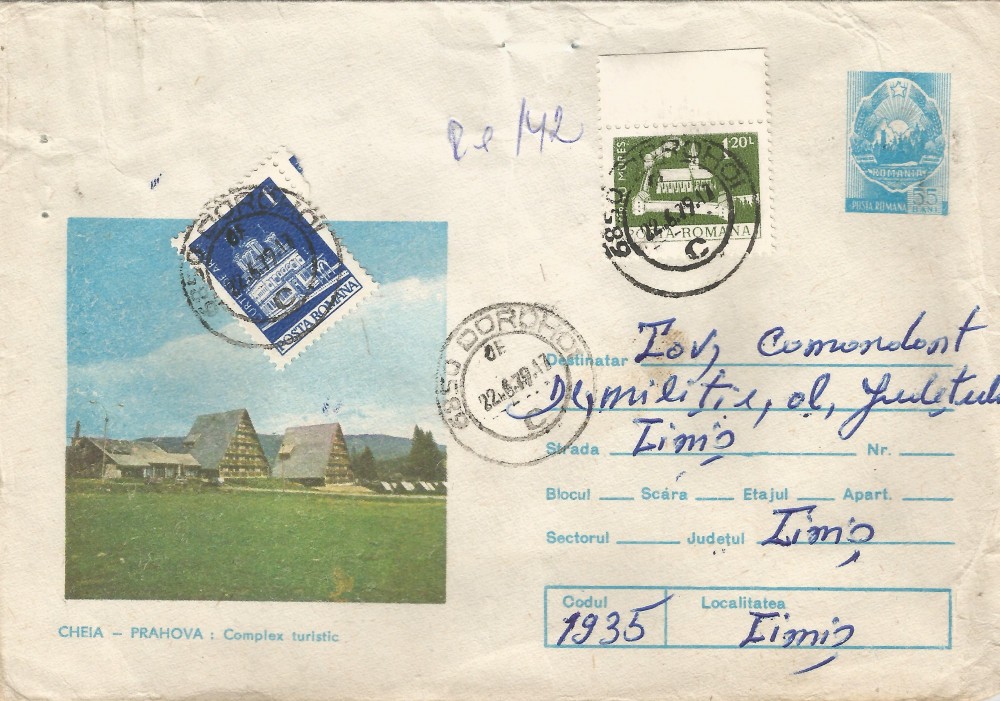 Re 142
1.20 L
POSTA ROMANA
6850 DOROHOI
22.6.79.17
C
ROMANIA
POSTA ROMANA 55
BANI
1
POSTA ROMANA
6850 DOROHOI
C
6850 DOROHOI
22.6.79.17
C
Destinatar Tov, Comandant
De militie, al, Județului
Strada Timiș Nr.
Blocul Scára Etajul Apart.
Sectorul Județul Timiș
Codul Localitatea
1935 Timiș
CHEIA – PRAHOVA : Complex turistic